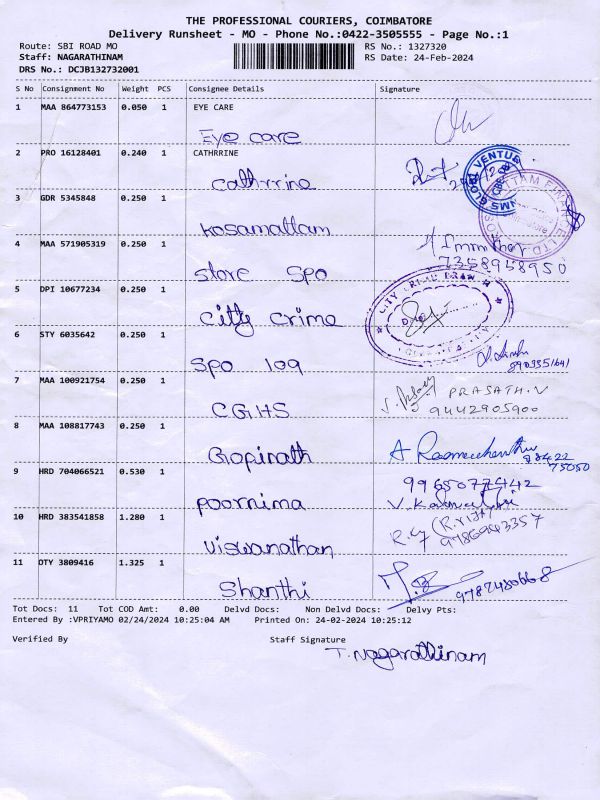 THE PROFESSIONAL COURIERS, COIMBATORE
Delivery Runsheet - MO - Phone No.:0422-3505555 - Page No.:1
Route: SBI ROAD MO
RS No.: 1327320
Staff: NAGARATHINAM
RS Date: 24-Feb-2024
DRS No.: DCJB132732001
S No Consignment No Weight PCS Consignee Details Signature
1 MAA 864773153 0.050 1 EYE CARE
Eye care
2 PRO 16128401 0.240 1 CATHRRINE
cathrrine
3 GDR 5345848 0.250 1
kosamattam
4 MAA 571905319 0.250 1
7358958950
store spo
5 DPI 10677234 0.250 1
citty crime
6 STY 6035642 0.250 1
spo 109
8903351641
7 MAA 100921754 0.250 1
PRASATH.V
9442905900
CGHS
8 MAA 108817743 0.250 1
Gopinath
75050
9 HRD 704066521 0.530 1
9965077442
poornima
10 HRD 383541858 1.280 1
9786943357
viswanathan
11 OTY 3809416 1.325 1
9787480668
Shanthi
Tot Docs: 11 Tot COD Amt: 0.00 Delvd Docs: Non Delvd Docs: Delvy Pts:
Entered By :VPRIYAMO 02/24/2024 10:25:04 AM Printed On: 24-02-2024 10:25:12
Verified By Staff Signature
T. Nagarathinam